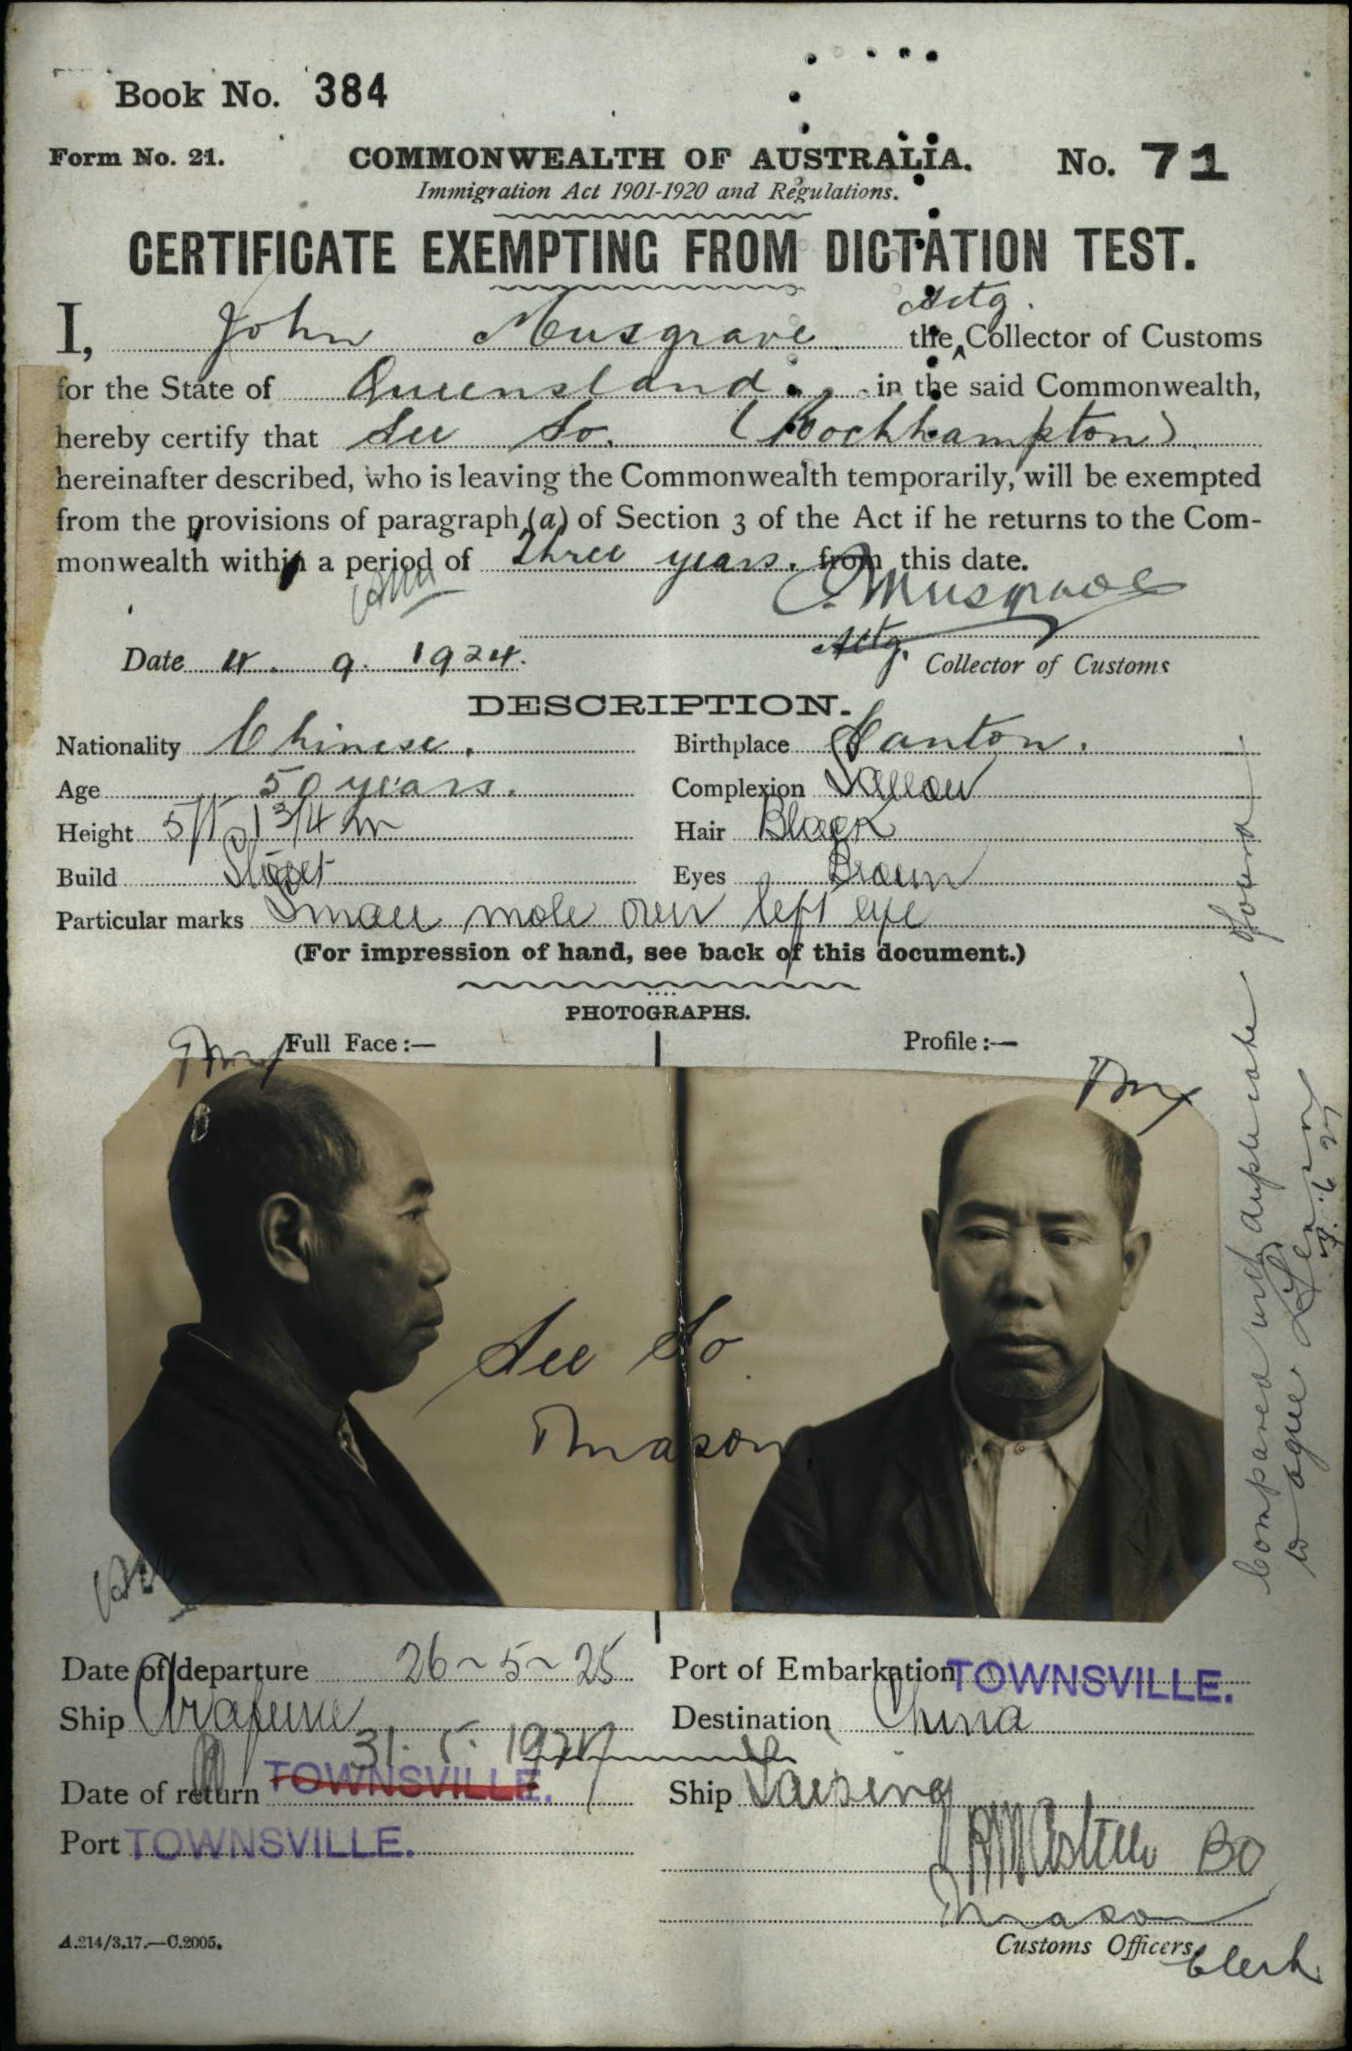 Book No. 384
Form No. 21.
COMMONWEALTH OF AUSTRALIA.
No. 71
Immigration Act 1901-1920 and Regulations.
CERTIFICATE EXEMPTING FROM DICTATION TEST.
Actg.
I, John Musgrave the Collector of Customs
for the State of Queensland. in the said Commonwealth,
hereby certify that See So. (Rockhampton)
hereinafter described, who is leaving the Commonwealth temporarily, will be exempted
from the provisions of paragraph (a) of Section 3 of the Act if he returns to the Com-
monwealth within a period of three years. from this date.
Musgrave
Date 4. 9. 1924.
Actg. Collector of Customs
DESCRIPTION.
Nationality Chinese. Birthplace Canton.
Age 50 years. Complexion Sallow
Height 5ft 1 3/4 in Hair Black
Build Slight Eyes Brown
Particular marks Small mole over left eye
(For impression of hand, see back of this document.)
PHOTOGRAPHS.
Full Face:— Profile:—
See So
Mason
Compared with duplicate found
to agree
Date of departure 26-5-25 Port of Embarkation TOWNSVILLE.
Ship Arafura Destination China
31. 5. 1927
Date of return TOWNSVILLE. Ship Taiping
Port TOWNSVILLE.
Mason
Customs Officers.
Clerk
A.214/3.17.—C.2005.